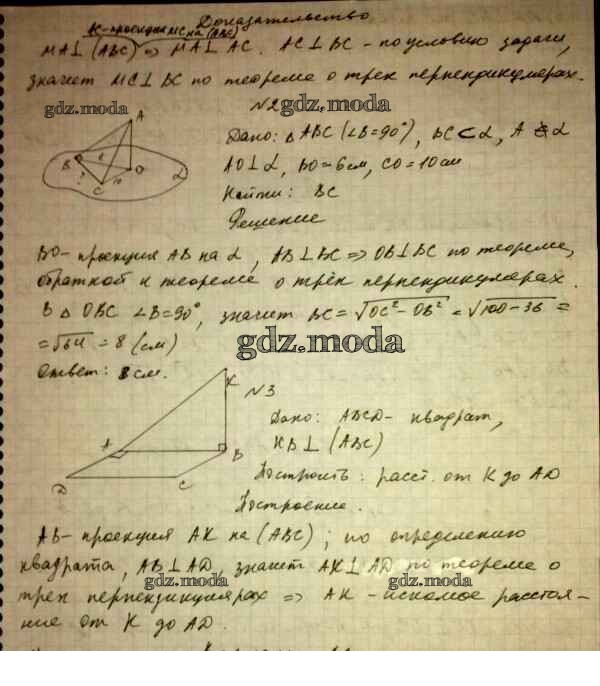 Доказательство
К - проекция MC на (ABC)
MA⊥(ABC) => MA⊥AC. AC⊥BC - по условию задачи,
значит MC⊥BC по теореме о трех перпендикулярах.
gdz.moda
gdz.moda
N2
gdz.moda
A
B
O
C
10
?
α
Дано: △ABC (∠B=90°), BC⊂α, A ∉ α
AO⊥α, BO=6см, CO=10см
Найти: BC
Решение
BO- проекция AB на α, AB⊥BC => OB⊥BC по теореме,
обратной к теореме о трёх перпендикулярах.
В △OBC ∠B=90°, значит BC=√OC²-OB² = √100-36 =
=√64 = 8 (см)
gdz.moda
Ответ: 8см.
N3
K
A
B
D
C
Дано: ABCD- квадрат,
KB⊥(ABC)
Построить: расст. от K до AD
Построение.
AB- проекция AK на (ABC); по определению
квадрата, AB⊥AD, значит AK⊥AD по теореме о
gdz.moda
gdz.moda
трех перпендикулярах => AK - искомое расстоя-
ние от K до AD.